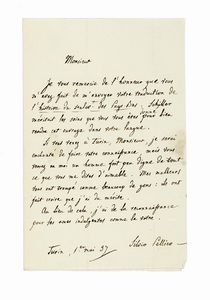 Monsieur
Je vous remercie de l'honneur que vous
m'avez fait de m'envoyer votre traduction de
l'histoire du soulèvt des Pays Bas. Schiller
méritait les soins que vous vous êtes donné pour bien
rendre cet ouvrage dans votre langue.
Si vous venez à Turin, Monsieur, je serai
enchanté de faire votre connaissance mais vous
verrez en moi un homme fort peu digne de tout
ce que vous me dites d'aimable. Mes malheurs
vous ont trompé comme beaucoup de gens: ils ont
fait croire que j'ai du mérite.
Au lieu de cela, j'ai de la reconnaissance
pour les âmes indulgentes comme la vôtre.
Turin, 1er mai 37
Silvio Pellico